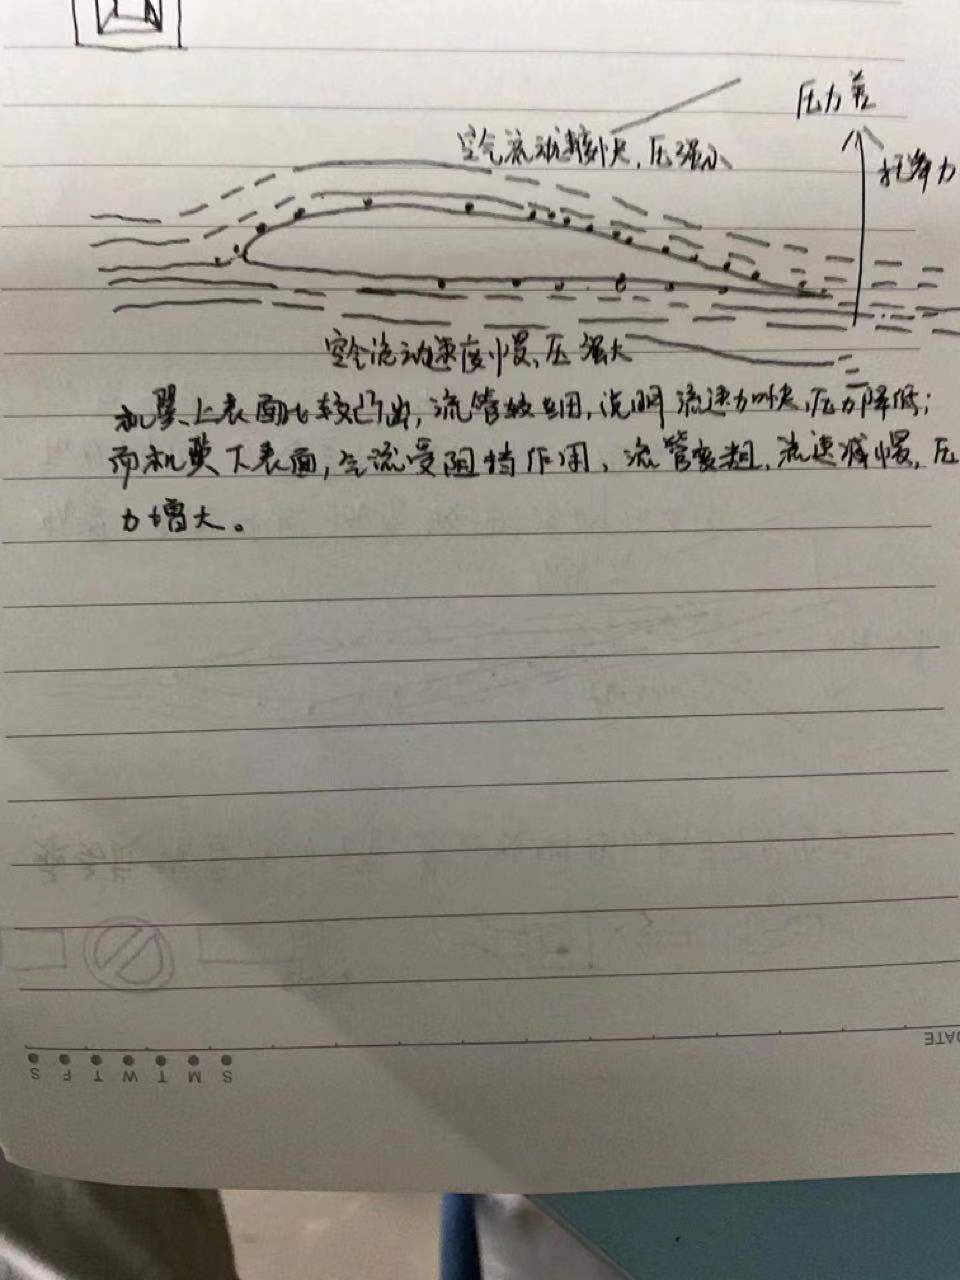 压力差
空气流动速度快，压强小
托举力
空气流动速度慢、压强大
机翼上表面比较凸出，流管较细，说明流速加快，压力降低；
而机翼下表面，气流受阻挡作用、流管变粗，流速减慢，压
力增大。
DATE
S M T W T F S